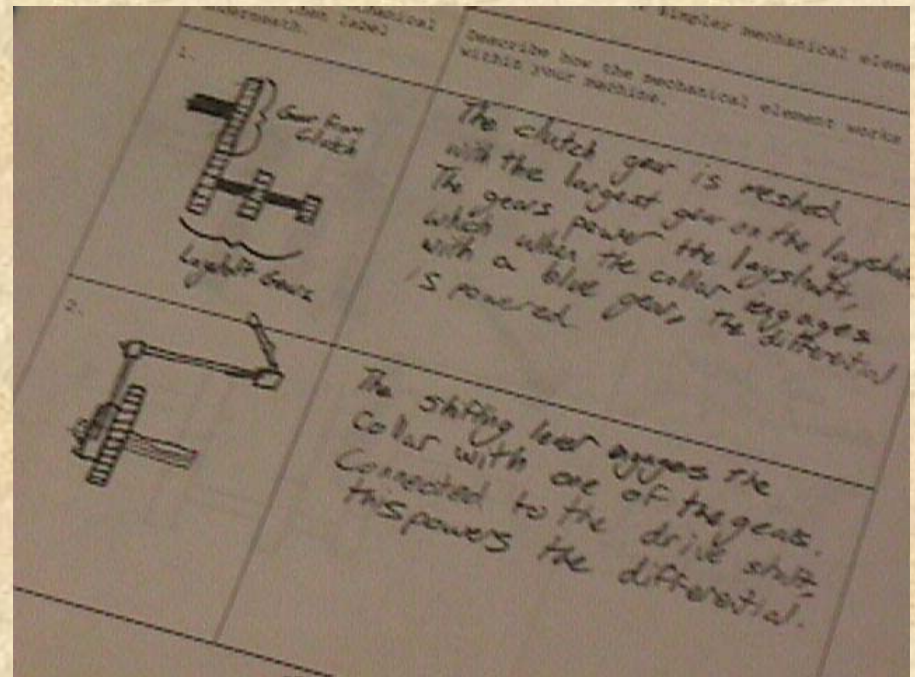 mechanical
then label
underneath.
simpler mechanical
Describe how the mechanical element works
within your machine.
1.
Gear from
clutch
Layshaft Gears
The clutch gear is meshed
with the largest gear on the layshaft
The gears power the layshaft,
which when the collar engages
with a blue gear, the differential
is powered
2.
The shifting lever engages the
Collar with one of the gears.
Connected to the drive shaft,
this powers the differential.